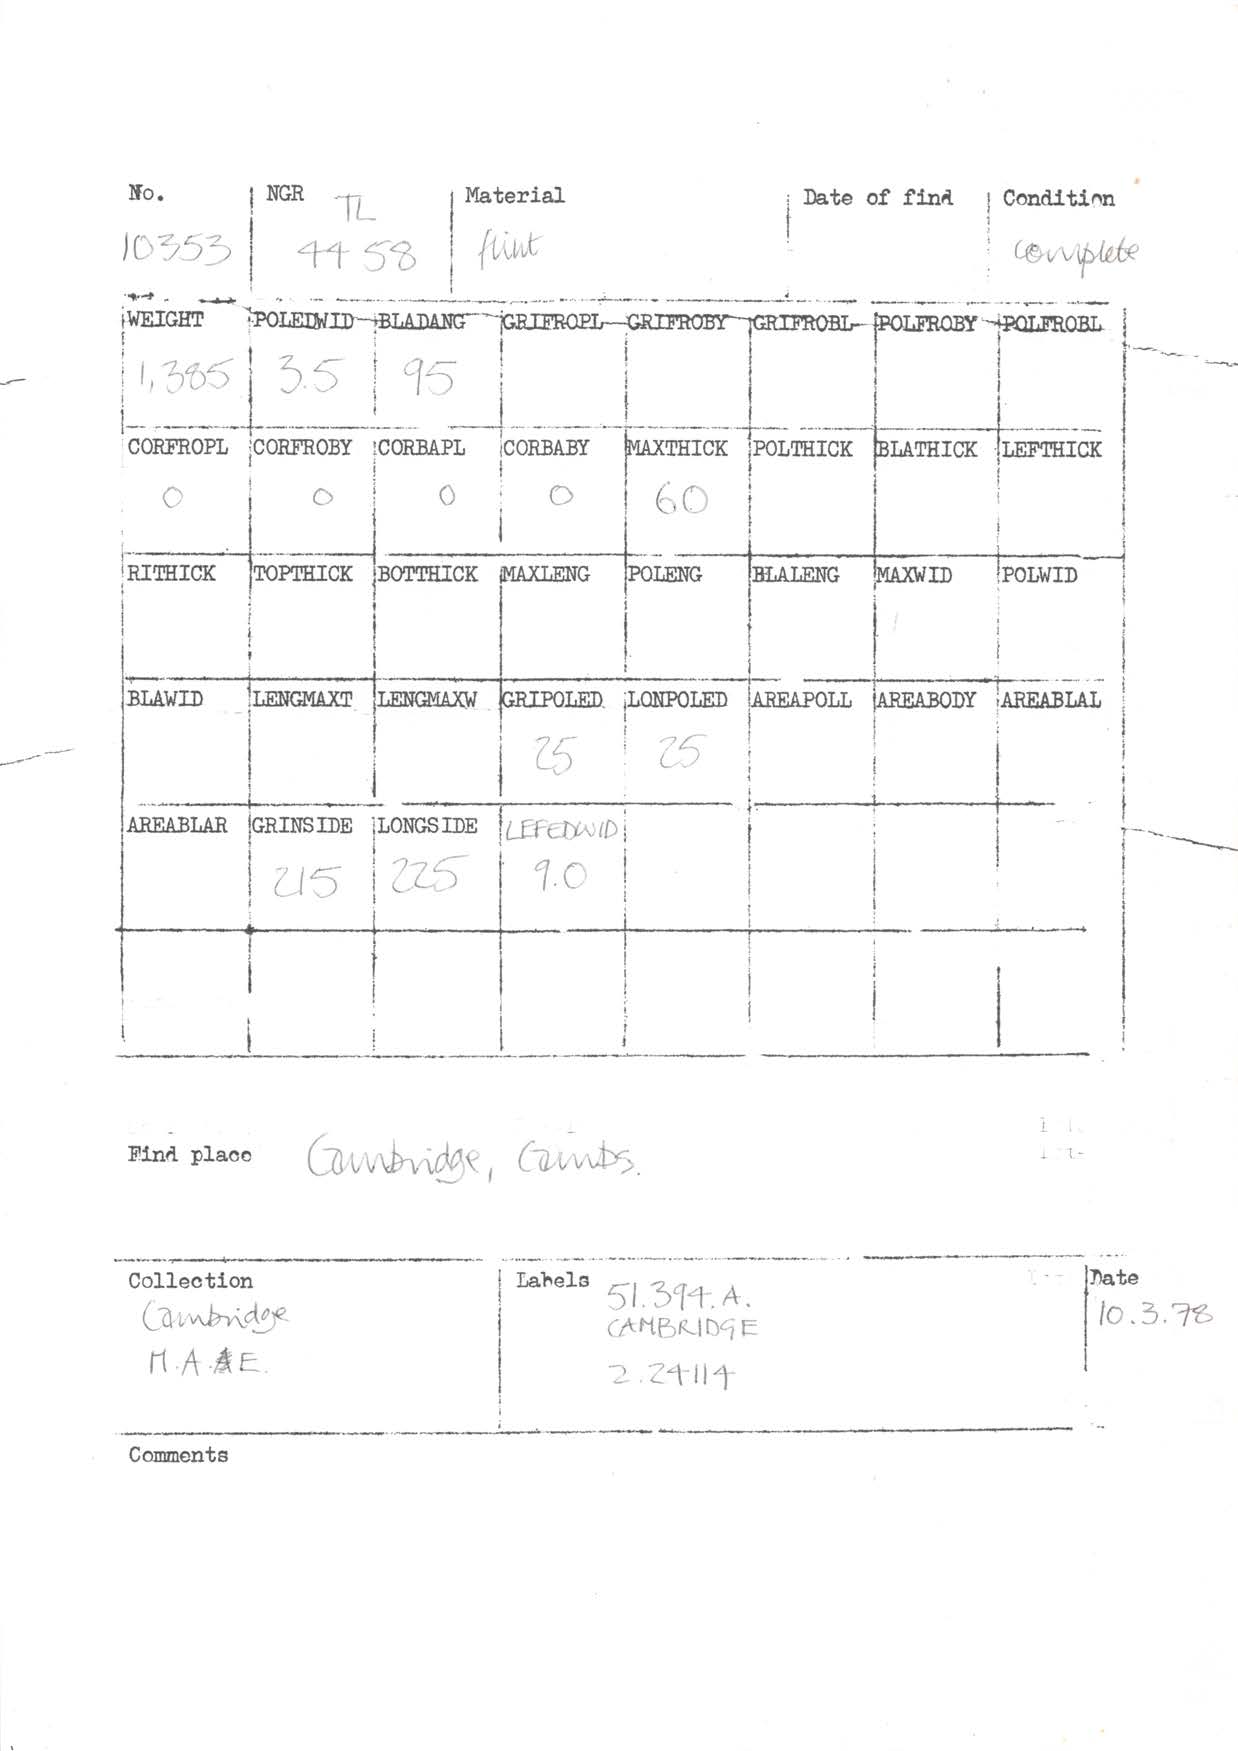 No. NGR Material Date of find Condition
TL
10353 44 58 flint complete
WEIGHT POLEDWID BLADANG GRIFROPL GRIFROBY GRIFROBL POLFROBY POLFROBL
1,385 3.5 95
CORFROPL CORFROBY CORBAPL CORBABY MAXTHICK POLTHICK BLATHICK LEFTHICK
0 0 0 0 60
RITHICK TOPTHICK BOTTHICK MAXLENG POLENG BLALENG MAXWID POLWID
BLAWID LENGMAXT LENGMAXW GRIPOLED LONPOLED AREAPOLL AREABODY AREABLAL
25 25
AREABLAR GRINSIDE LONGSIDE LEFEDWID
215 225 9.0
Find place Cambridge, Cambs.
Collection Labels 51.394.A. Date
Cambridge CAMBRIDGE 10.3.78
M.A.A.E. 2.24114
Comments